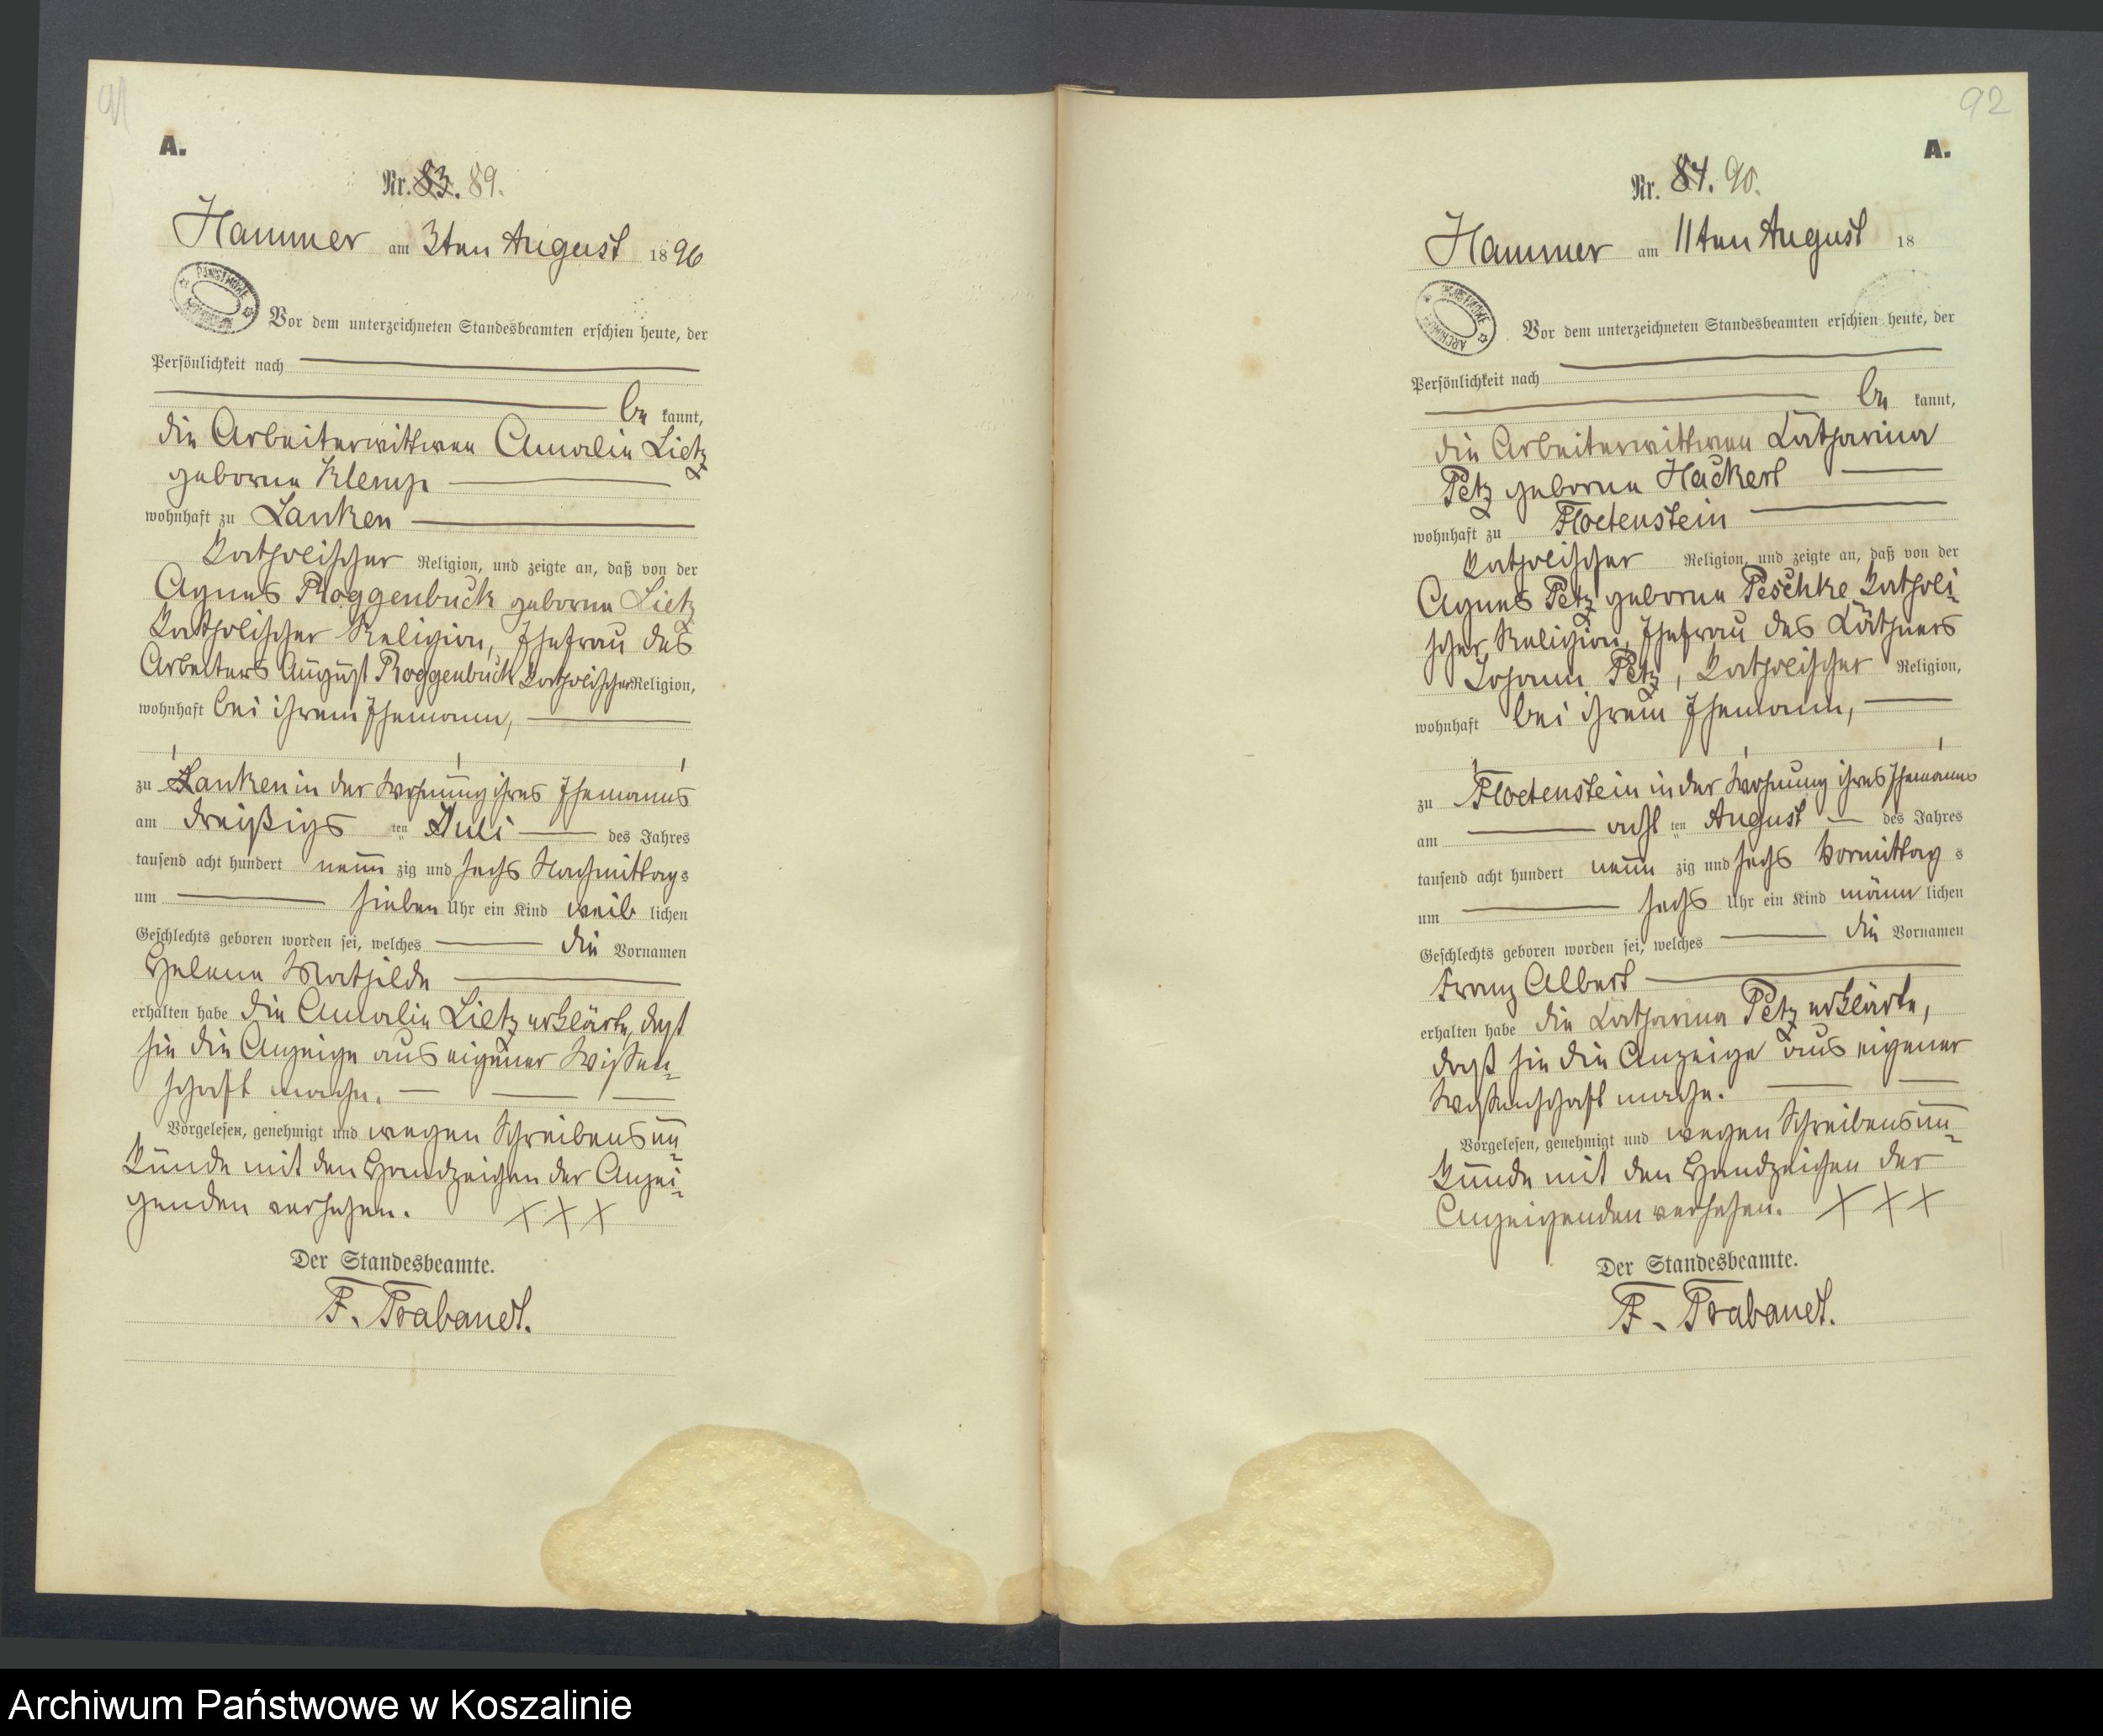 91
A.
Nr. 83. 89.
Hammer am 3ten August 1896
Vor dem unterzeichneten Standesbeamten erschien heute, der
Persönlichkeit nach
be kannt,
die Arbeiterwittwe Amalie Lietz
geborne Klemp
wohnhaft zu Lanken
katholischer Religion, und zeigte an, daß von der
Agnes Roggenbuck geborne Lietz
katholischer Religion, Ehefrau des
Arbeiters August Roggenbuck katholischer Religion,
wohnhaft bei ihrem Ehemann,
zu Lanken in der Wohnung ihres Ehemannes
am dreißigs ten Juli des Jahres
tausend acht hundert neun zig und sechs Nachmittags
um sieben Uhr ein Kind weib lichen
Geschlechts geboren worden sei, welches die Vornamen
Helene Mathilde
erhalten habe die Amalie Lietz erklärte, daß
sie die Anzeige aus eigener Wissen-
schaft mache.
Vorgelesen, genehmigt und wegen Schreibensun-
kunde mit den Handzeichen der Anzei-
genden versehen. XXX
Der Standesbeamte.
F. Trabandt.
92
A.
Nr. 84. 90.
Hammer am 11ten August 18
Vor dem unterzeichneten Standesbeamten erschien heute, der
Persönlichkeit nach
be kannt,
die Arbeiterwittwe Katharina
Petz geborne Hackert
wohnhaft zu Floetenstein
katholischer Religion, und zeigte an, daß von der
Agnes Petz geborne Peschke katholi-
scher Religion, Ehefrau des Käthners
Johann Petz, katholischer Religion,
wohnhaft bei ihrem Ehemann,
zu Floetenstein in der Wohnung ihres Ehemannes
am acht ten August des Jahres
tausend acht hundert neun zig und sechs Vormittag s
um sechs Uhr ein Kind männ lichen
Geschlechts geboren worden sei, welches die Vornamen
Franz Albert
erhalten habe die Katharina Petz erklärte,
daß sie die Anzeige aus eigener
Wissenschaft mache.
Vorgelesen, genehmigt und wegen Schreibensun-
kunde mit den Handzeichen der
Anzeigenden versehen. XXX
Der Standesbeamte.
F. Trabandt.
Archiwum Państwowe w Koszalinie